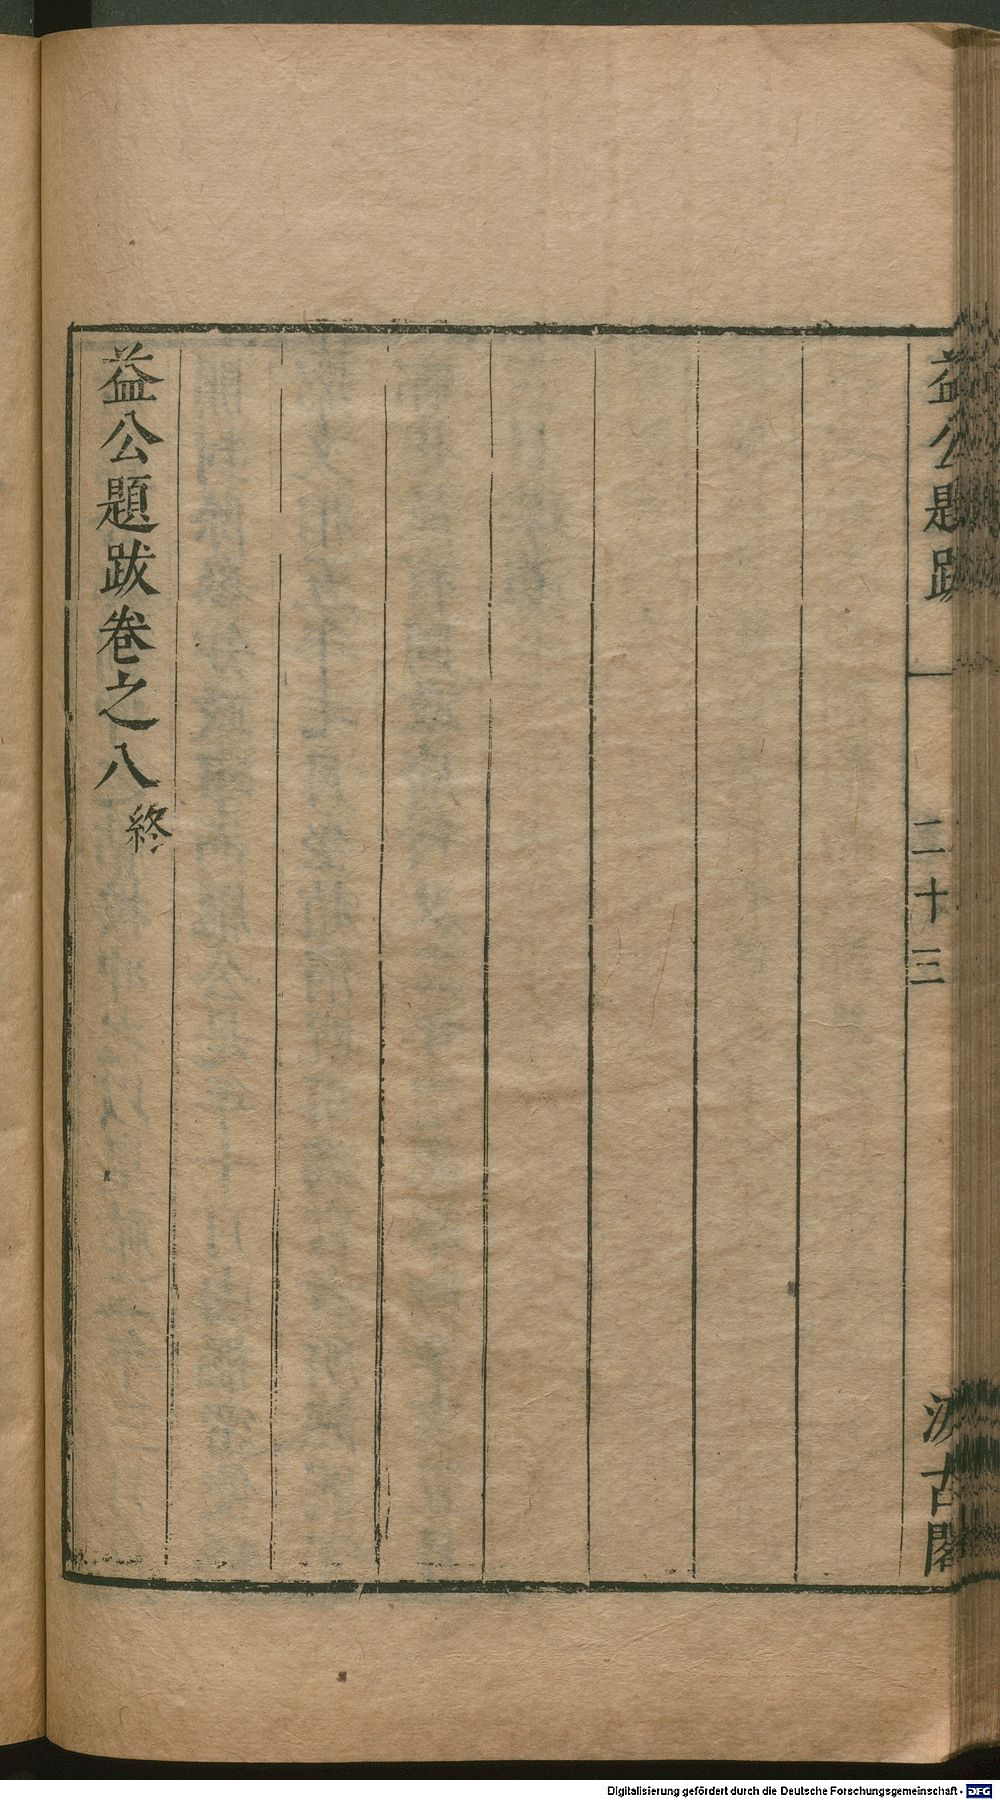 益公題跋
三十三
汲古閣
益公題跋卷之八終
Digitalisierung gefördert durch die Deutsche Forschungsgemeinschaft - DFG